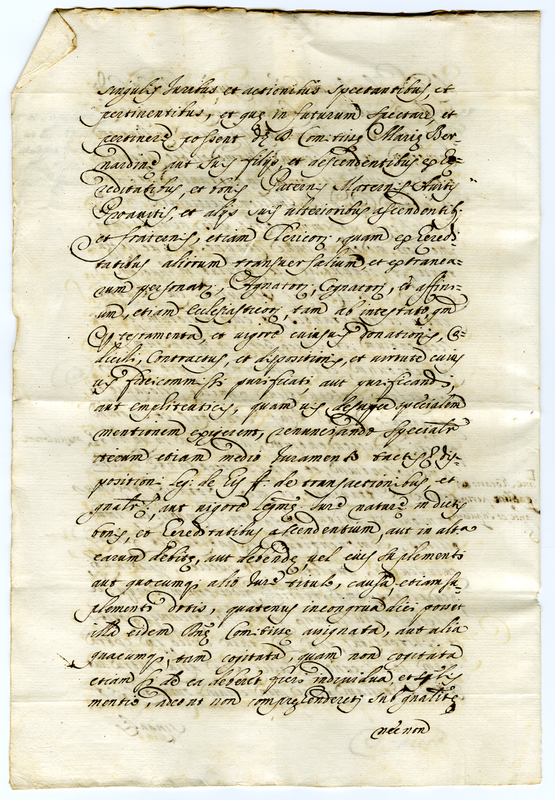 singulis Juribus et actionibus spectantibus, et
pertinentibus, et quę in futurum spectare et
pertinere possent Dę D. Comitissę Marię Ber-
nardinę aut suis filijs, et descendentibus ex Ęę-
reditatibus, et bonis Paternis Maternis Avitis
Proavitis, et alijs suis ulterioribus ascendentib;
et fraternis, etiam Clericor; quam ex Eredi-
tatibus aliorum transversalium et extranea-
rum personar; Agnator; Cognator; et affin-
ium, etiam Ecclesiasticor; tam ab intestato, qm
ex testamento, et vigore cuiusvis donationis, Co-
dicilli, Contractus, et dispositionis, et virtute cuius
vis fideicommissi purificati aut purificandi,
aut emphiteutici, quam vis de super specialem
mentionem exigerent, renunciando specialr
tecum etiam medio Juramento tactis dis-
position; Leg; de Eis ff. de transactionibus, et
gnalr; aut vigore Legmę Jure naturę in dictis
bonis, et Ereditatibus ascendentium, aut in alta
earum debitę, aut debendę, vel eius suplementi
aut quocumq; alio Jure titulo, causa, etiam su-
plementi dotis, quatenus incongrua dici posset
illa eidem Dnę Comitissę assignata, aut alia
quacumq; tam cogitata, quam non cogitata
etiam si de ea deberet fieri individua, et splis
mentio, adeout non comprehenderet; sub gnalitę
nec non